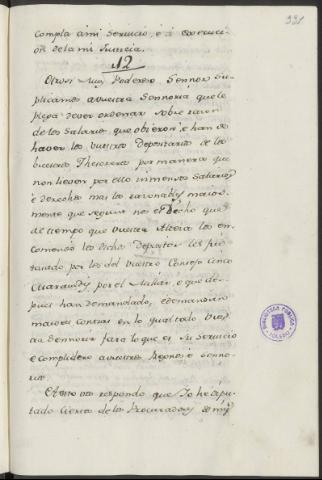 331
compla à mi Servicio, è à execucion
on de la mi Justicia.
12
Otrosi Muy Poderoso Sennor su-
plicamos a vuestra Sennoria que le
plega de ver ordenar sobre razon
de los salarios que obieron è han de
haver los vuestros Depositarios de los
vuestros Thesoreros por manera que
non lieven por ello inmensos salarios
è derechos mas los razonables mayor-
mente que segun nos es Dicho que
de tiempo que vuestra Alteza les en-
comendò los dichos Depositos les fue
tasado por los del vuestro Consejo cinco
maravedis por el Millar, è que des-
pues han demandado, è demandan
maiores contias en lo qual todo vues-
tra Sennoria fara lo que es su servicio
è complidero a vuestros Regnos, è Senno-
rios.
A esto vos respondo que Yo he dipu-
tado ciertos de los Procuradores de mis
BIBLIOTECA PUBLICA
TOLEDO